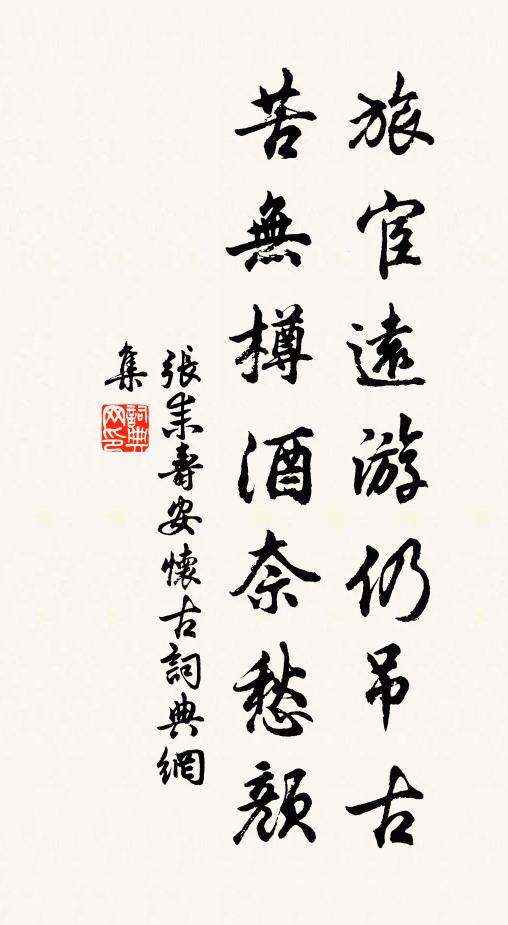 旅宦遠游仍吊古
苦無樽酒奈愁顏
張耒壽安懷古詞典網
集
詞典
网印